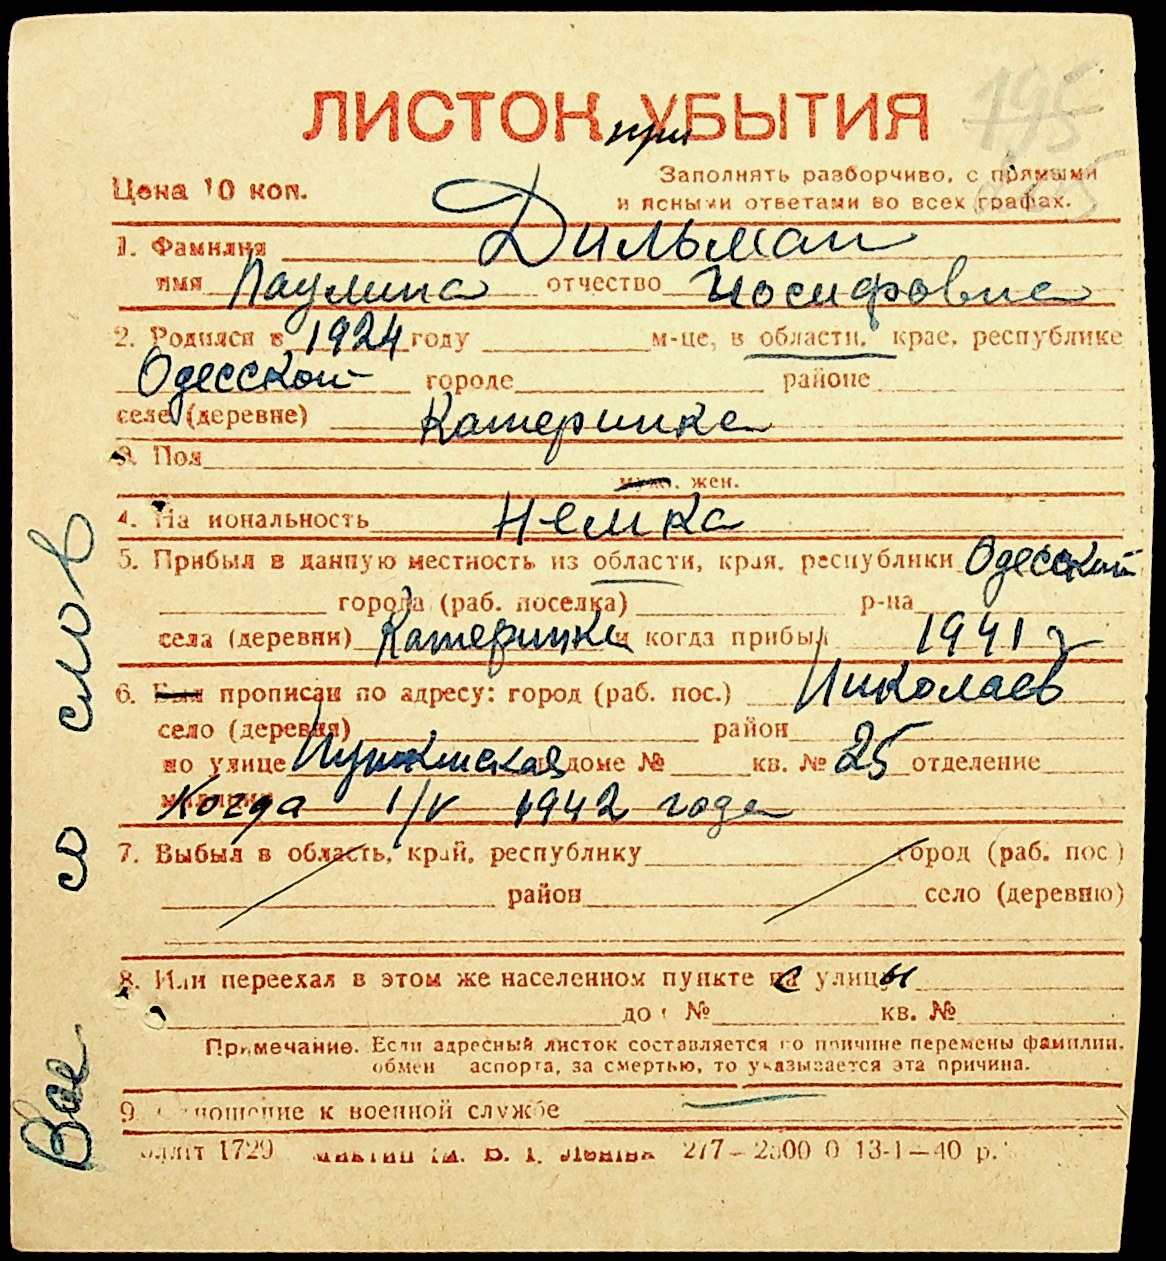 195
205
ЛИСТОК УБЫТИЯ
при
Цена 10 коп.
Заполнять разборчиво, с прямыми
и ясными ответами во всех графах.
1. Фамилия Дильман
имя Паулина отчество Иосифовна
2. Родился в 1924 году м-це, в области, крае, республике
Одесской городе районе
селе (деревне) Катеринке
3. Пол
муж. жен.
4. На иональность немка
5. Прибыл в данную местность из области, края, республики Одесской
города (раб. поселка) р-на
села (деревни) Катеринке и когда прибыл 1941 г
6. Был прописан по адресу: город (раб. пос.) Николаев
село (деревня) район
по улице Пушкинская доме № кв. № 25 отделение
милиции Когда 1/V 1942 года
7. Выбыл в область, край, республику город (раб. пос.)
район село (деревню)
8. Или переехал в этом же населенном пункте с улицы
до № кв. №
Примечание. Если адресный листок составляется по причине перемены фамилии,
обмен аспорта, за смертью, то указывается эта причина.
9. отношение к военной службе
1729 277 — 2500 0 13-1—40 р.
Все со слов